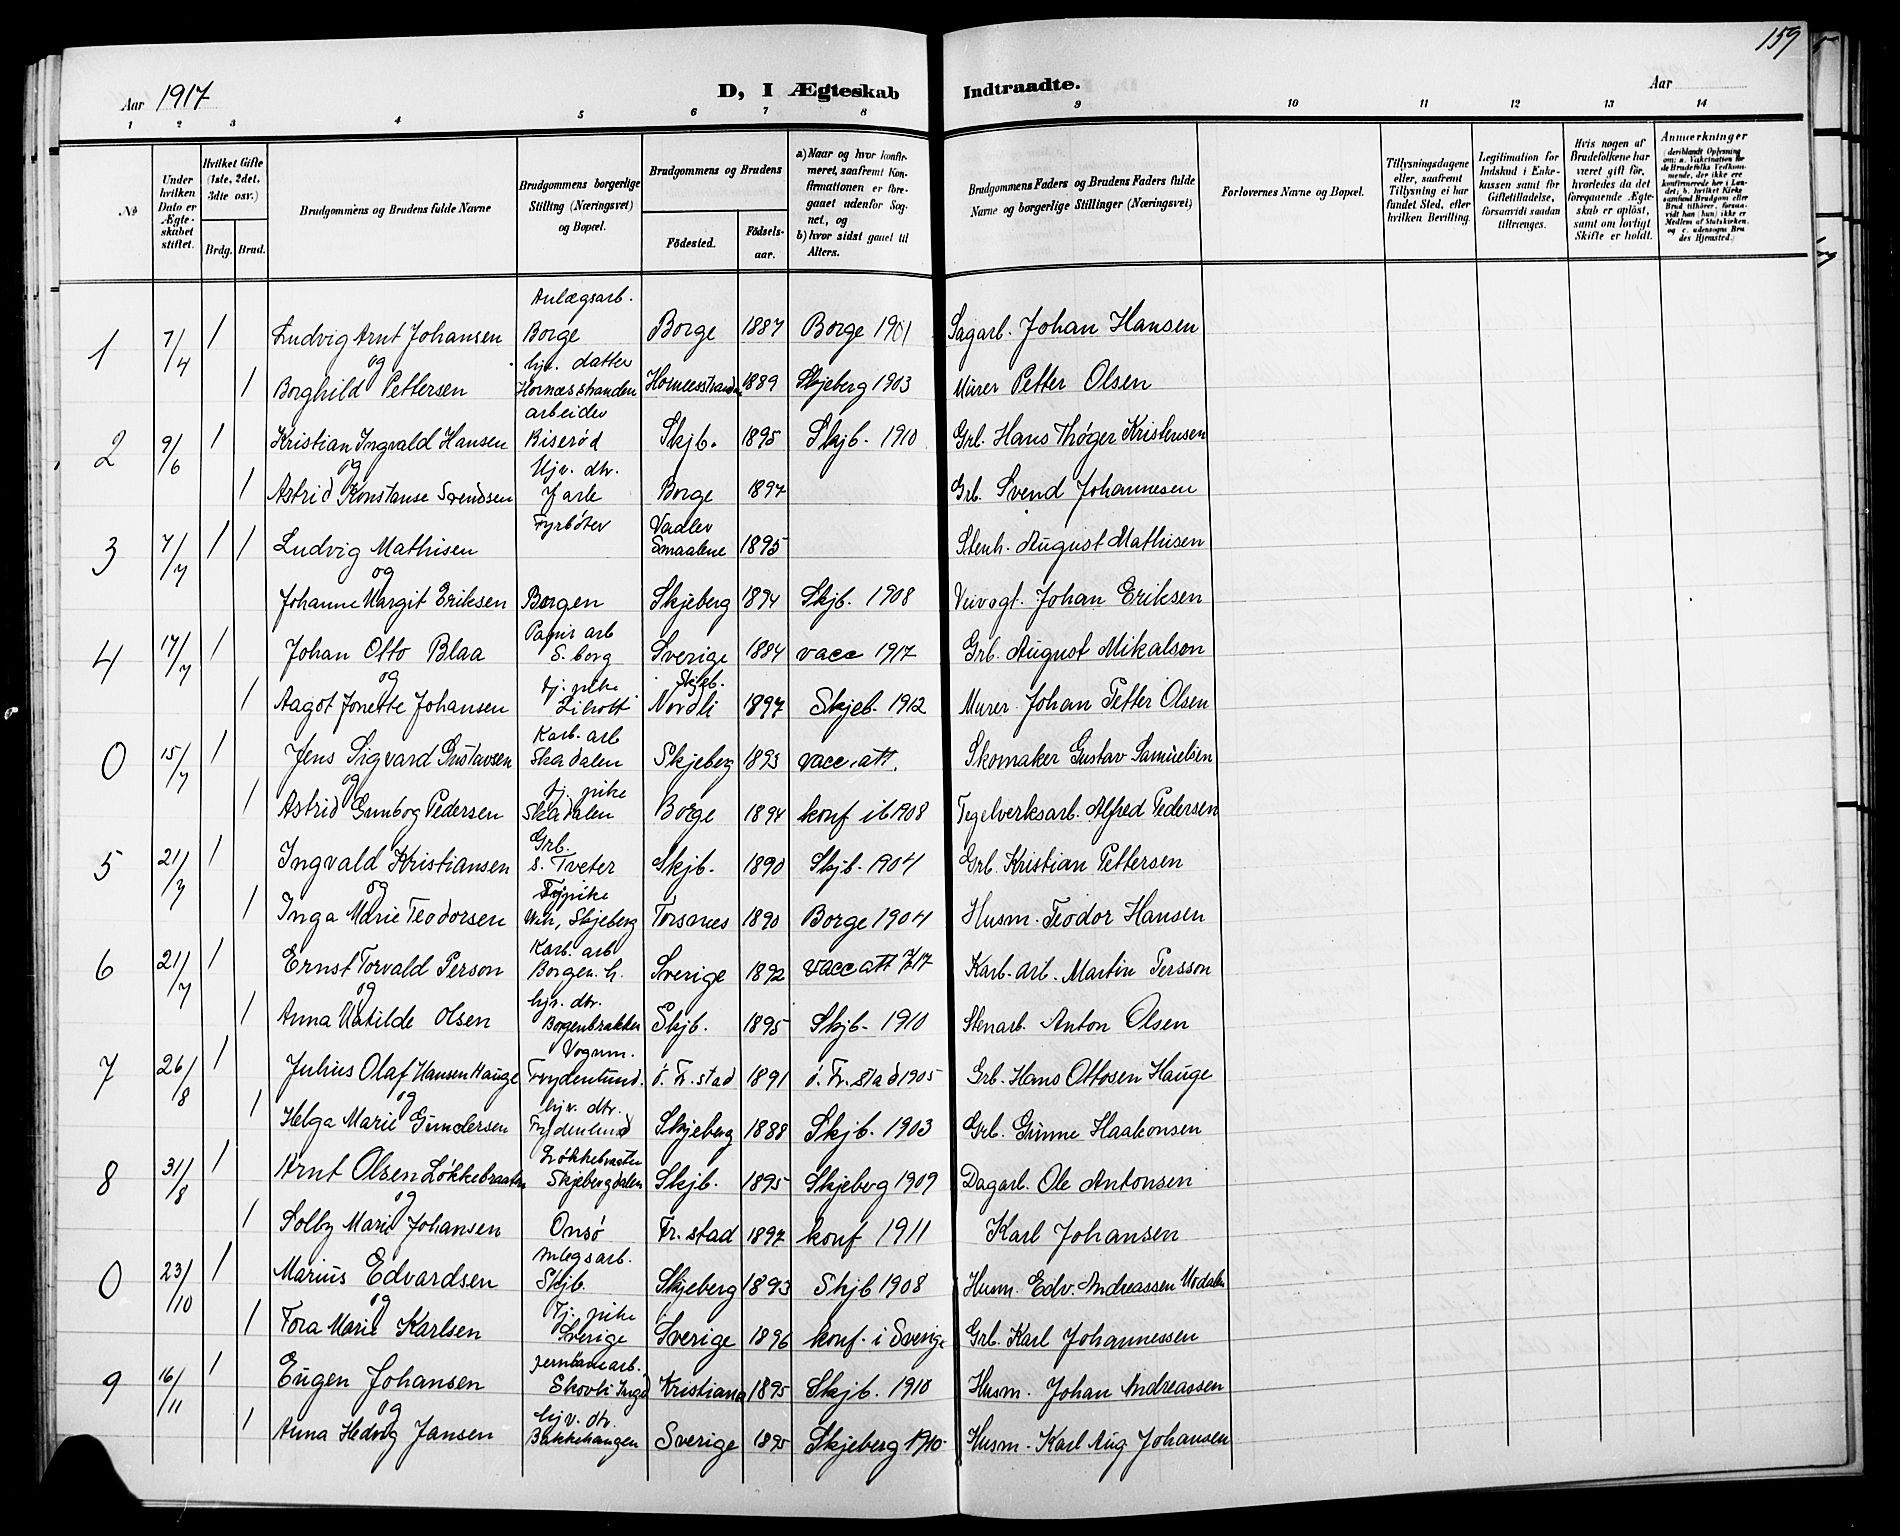 159
Aar 1917
D, I Ægteskab Indtraadte.
Aar
1 2 3 4 5 6 7 8 9 10 11 12 13 14
No
Under hvilken Dato er Ægteskabet stiftet.
Hvilket Gifte (1ste, 2det, 3die osv.)
Brdg. Brud.
Brudgommens og Brudens fulde Navne
Brudgommens borgerlige Stilling (Næringsvei) og Bopæl.
Brudgommens og Brudens
Födested.
Födselsaar.
a) Naar og hvor konfirmeret, saafremt Konfirmationen er foregaaet udenfor Sognet, og
b) hvor sidst gaaet til Alters.
Brudgommens Faders og Brudens Faders fulde Navne og borgerlige Stillinger (Næringsvei)
Forlovernes Navne og Bopæl.
Tillysningsdagene eller, saafremt Tillysning ei har fundet Sted, efter hvilken Bevilling.
Legitimation for Indskud i Enkekassen samt for Giftetilladelse, forsaavidt saadan tiltrænges.
Hvis nogen af Brudefolkene har været gift för, hvorledes da det foregaaende Ægteskab er oplöst, samt om lovligt Skifte er holdt.
Anmærkninger
(deriblandt Oplysning om: a. Vakcination for de Brudefolks Vedkommende, der ikke ere konfirmerede her i Landet; b. hvilket Kirkesamfund Brudgom eller Brud tilhörer, forsaavidt han (hun) ikke er Medlem af Statskirken, og c. udensogns Brudes Hjemsted.)
Anlægsarb.
1 7/4 1 Ludvig Arnt Johansen Borge Borge 1887 Borge 1901 Sagarb. Johan Hansen
og hjv. datter
1 Borghild Pettersen Hornæsstranden Hornesstranden 1889 Skjeberg 1903 Murer Petter Olsen
arbeider
2 9/6 1 Kristian Ingvald Hansen Biserød Skjb. 1895 Skjb. 1910 Grb. Hans Thøger Kristensen
og Hjv. dtr.
1 Astrid Konstanse Svendsen Borge 1897 Grb. Svend Johannesen
Fyrbøter Vadler
3 7/7 1 1 Ludvig Mathisen Smaalene 1895 Stenh. August Mathisen
og
Johanne Margit Eriksen Borgen Skjeberg 1894 Skjb. 1908 Veivogt. Johan Eriksen
Papir arb
4 17/7 1 Johan Otto Blaa S. borg Sverige 1884 vacc 1917 Grb. August Mikalson
og tj. pike Skjeb.
1 Aagot Jonette Johansen Nordli 1897 Skjeb. 1912 Murer Johan Petter Olsen
Karb. arb
0 15/7 1 Jens Sigvard Gustavsen Skadalen Skjeberg 1893 vacc. att. Skomaker Gustav Samuelsen
og tj. pike
1 Astrid Gunbog Pedersen Skadalen Borge 1894 konf ib 1908 Tegelverksarb. Alfred Pedersen
Grb.
5 21/7 1 Ingvald Kristiansen S. Tveter Skjb. 1890 Skjb. 1904 Grb. Kristian Pettersen
og Tjpike
1 Inga Marie Teodorsen Skjeberg Torsnes 1890 Borge 1904 Husm. Teodor Hansen
Karb. arb
6 21/7 1 Ernst Torvald Person Borgen. h. Sverige 1892 vacc att 7/17 Karb. arb. Martin Persson
og hjv. dtr.
1 Anna Matilde Olsen Borgenbrakker Skjb. 1895 Skjb. 1910 Stenarb. Anton Olsen
Vognm.
7 26/8 1 Julius Olaf Hansen Hauge Frydenlund. ö. Fr. stad 1891 ö. Fr. stad 1905 Grb. Hans Ottosen Hauge
og hjv. dtr.
1 Helga Marie Gundersen Frydenlund Skjeberg 1888 Skjb. 1903 Grb. Gunne Haakonsen
8 31/8 1 Arnt Olsen Løkkebraaten Skjebergdalen Skjb. 1895 Skjeberg 1909 Dagarb. Ole Antonsen
og
1 Solby Marie Johansen Onsø Fr. stad 1897 konf 1911 Karl Johansen
Anlegsarb.
0 23/10 1 Marius Edvardsen Skjb. Skjeberg 1893 Skjb 1908 Husm. Edv. Andreassen
og Tj. pike
1 Tora Marie Karlsen Sverige Sverige 1896 konf. i Sverige Grb. Karl Johannessen
jernbanearb.
9 16/11 1 Eugen Johansen Skovli Kristiania 1895 Skjb. 1910 Husm. Johan Andreassen
og hjv. dtr.
1 Anna Hedvig Jansen Bakkehaugen Sverige 1895 Skjeberg 1910 Husm. Karl Aug. Johansen